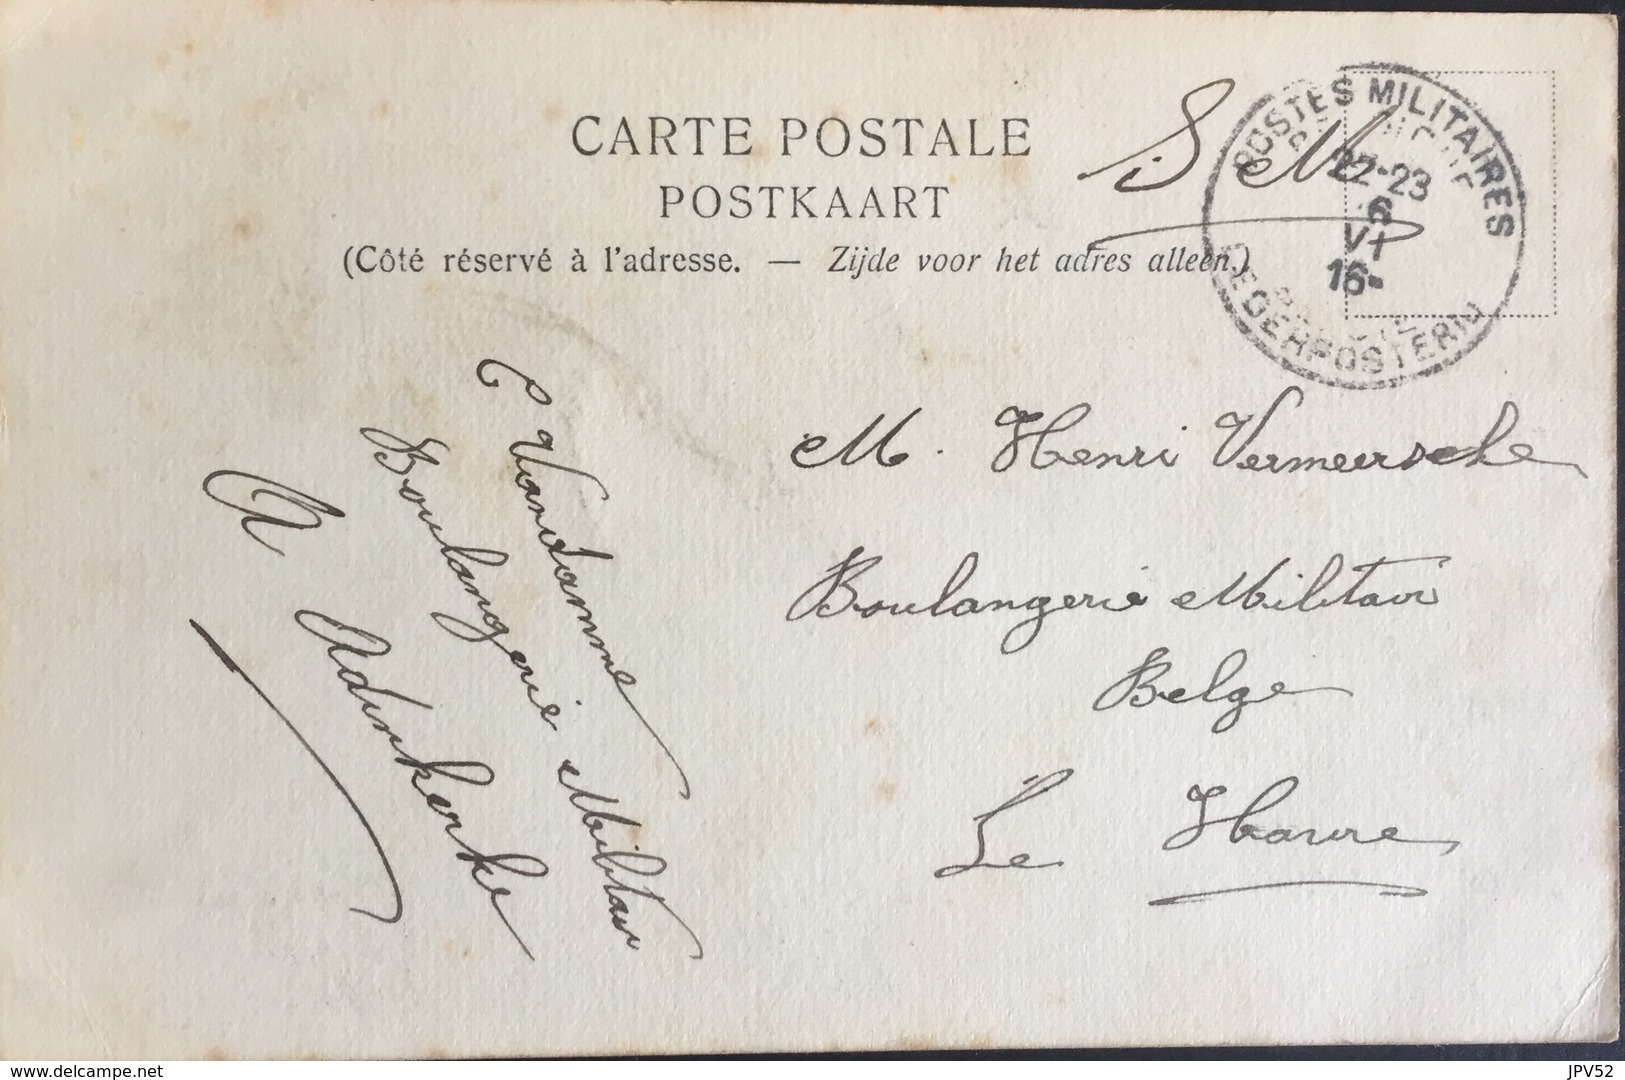 CARTE POSTALE
POSTKAART
(Côté réservé à l'adresse. — Zijde voor het adres alleen.)
S M
POSTES MILITAIRES
22-23
6
VI
16-
LEGERPOSTERIJ
M. Henri Vermeersche
Boulangerie Militair
Belge
Le Havre
C Vandamme
Boulangerie Militair
A Adinkerke
delcampe.net
JPV52